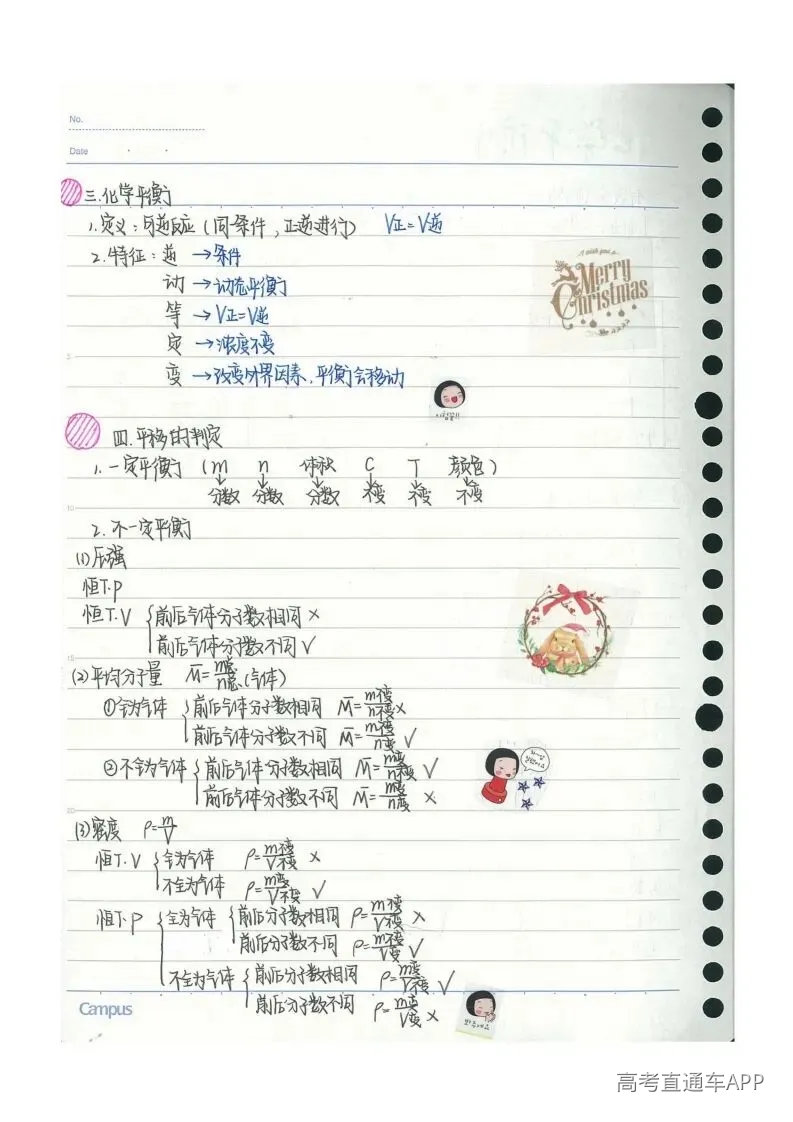 No.
Date
三.化学平衡
1.定义:可逆反应(同条件,正逆进行) V正=V逆
2.特征:逆 →条件
动 →动态平衡
等 →V正=V逆
定 →浓度不变
变 →改变外界因素,平衡会移动
I wish you a
Merry
Christmas
四.平移的判定
1.一定平衡(m n 体积 C T 颜色)
↓ ↓ ↓ ↓ ↓ ↓
分数 分数 分数 不变 不变 不变
2.不一定平衡
(1)压强
恒T.P
恒T.V {前后气体分子数相同 ×
前后气体分子数不同 √
(2)平均分子量 M̄=m总/n总(气体)
①全为气体 {前后气体分子数相同 M̄=m不变/n不变 ×
前后气体分子数不同 M̄=m不变/n变 √
②不全为气体 {前后气体分子数相同 M̄=m变/n不变 √
前后气体分子数不同 M̄=m变/n变 ×
(3)密度 ρ=m/V
恒T.V {全为气体 ρ=m不变/V不变 ×
不全为气体 ρ=m变/V不变 √
恒T.P {全为气体 {前后分子数相同 ρ=m不变/V不变 ×
前后分子数不同 ρ=m不变/V变 √
不全为气体 {前后分子数相同 ρ=m变/V不变 √
前后分子数不同 ρ=m变/V变 ×
Campus
高考直通车APP